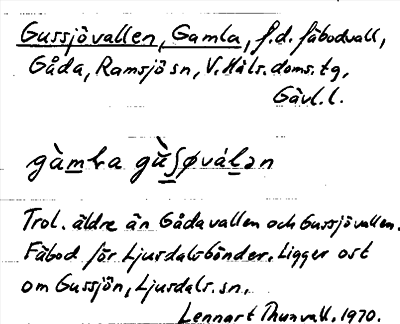 Gussjövallen, Gamla, f.d. fäbodvall,
Gåda, Ramsjö sn, V. Häls. doms. tg,
Gävl. l.
gàmla gùʃøválən
Trol. äldre än Gådavallen och Gussjövallen.
Fäbod för Ljusdalsbönder. Ligger ost
om Gussjön, Ljusdals sn.
Lennart Thunvall. 1970.